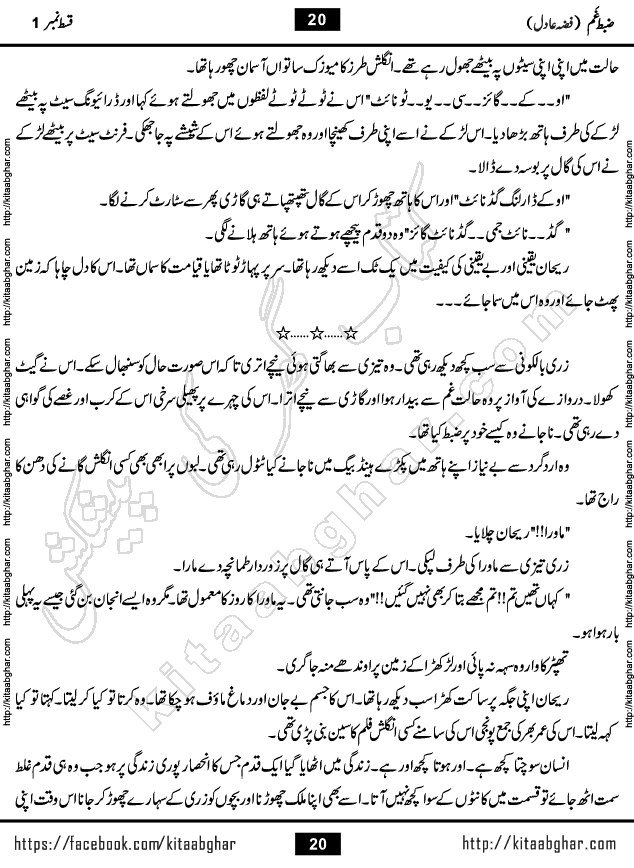 ضبطِ غم (فضہ عادل)
20
قسط نمبر 1
حالت میں اپنی اپنی سیٹوں پہ بیٹھے جھول رہے تھے۔ انگلش طرز کا میوزک ساتواں آسمان چھو رہا تھا۔
"او۔۔ کے۔۔ گائز۔۔ سی۔۔ یو۔۔ ٹو نائٹ" اس نے ٹوٹے ٹوٹے لفظوں میں جھولتے ہوئے کہا اور ڈرائیونگ سیٹ پہ بیٹھے
لڑکے کی طرف ہاتھ بڑھا دیا۔ اس لڑکے نے اسے اپنی طرف کھینچا اور وہ جھولتے ہوئے اس کے شیشے پہ جا جھکی۔ فرنٹ سیٹ پر بیٹھے لڑکے
نے اس کی گال پر بوسہ دے ڈالا۔
"او کے ڈارلنگ گڈ نائٹ" اور اس کا ہاتھ چھوڑ کر اس کے گال تھپتھپاتے ہی گاڑی پھر سے سٹارٹ کرنے لگا۔
"گڈ۔۔ نائٹ جمی۔۔ گڈ نائٹ گائز" وہ دو قدم پیچھے ہوتے ہوئے ہاتھ ہلانے لگی۔
ریحان یقینی اور بے یقینی کی کیفیت میں یک ٹک اسے دیکھ رہا تھا۔ سر پر پہاڑ ٹوٹا تھا یا قیامت کا سماں تھا۔ اس کا دل چاہا کہ زمین
پھٹ جائے اور وہ اس میں سما جائے۔۔۔
☆......☆......☆
زری بالکونی سے سب کچھ دیکھ رہی تھی۔ وہ تیزی سے بھاگتی ہوئی نیچے اتری تاکہ اس صورت حال کو سنبھال سکے۔ اس نے گیٹ
کھولا۔ دروازے کی آواز پر وہ حالت غم سے بیدار ہوا اور گاڑی سے نیچے اترا۔ اس کی چہرے پر پھیلی سرخی اس کے کرب اور غصے کی گواہی
دے رہی تھی۔ نا جانے وہ کیسے خود پر ضبط کیا تھا۔
وہ ارد گرد سے بے نیاز اپنے ہاتھ میں پکڑے ہینڈ بیگ میں نا جانے کیا ٹٹول رہی تھی۔ لبوں پر ابھی بھی کسی انگلش گانے کی دھن کا
راج تھا۔
"ماورا!!" ریحان چلایا۔
زری تیزی سے ماورا کی طرف لپکی۔ اس کے پاس آتے ہی گال پر زوردار طمانچہ دے مارا۔
"کہاں تھیں تم!! تم مجھے بتا کر بھی نہیں گئیں!!" وہ سب جانتی تھی۔ یہ ماورا کا روز کا معمول تھا۔ مگر وہ ایسے انجان بن گئی جیسے یہ پہلی
بار ہوا ہو۔
تھپڑ کا وار وہ سہہ نہ پائی اور لڑکھڑا کے زمین پر اوندھے منہ جا گری۔
ریحان اپنی جگہ پر ساکت کھڑا سب دیکھ رہا تھا۔ اس کا جسم بے جان اور دماغ ماؤف ہو چکا تھا۔ وہ کرتا تو کیا کر لیتا۔ کہتا تو کیا
کہہ لیتا۔ اس کی عمر بھر کی جمع پونجی اس کی سامنے کسی انگلش فلم کا سین بنی پڑی تھی۔
انسان سوچتا کچھ ہے۔ اور ہوتا کچھ اور ہے۔ زندگی میں اٹھایا گیا ایک قدم جس کا انحصار پوری زندگی پر ہو جب وہ ہی قدم غلط
سمت اٹھ جائے تو قسمت میں کانٹوں کے سوا کچھ نہیں آتا۔ اسے بھی اپنا ملک چھوڑنا اور بچوں کو زری کے سہارے چھوڑ کر جانا اس وقت اپنی
https://facebook.com/kitaabghar
20
http://kitaabghar.com
http://kitaabghar.com http://kitaabghar.com http://kitaabghar.com http://kitaabghar.com http://kitaabghar.com http://kitaabghar.com
http://kitaabghar.com http://kitaabghar.com http://kitaabghar.com http://kitaabghar.com http://kitaabghar.com http://kitaabghar.com
کتاب گھر کی پیشکش
kitaabghar.com